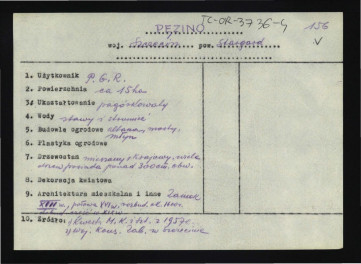 TC-OR-3736-4
PĘZINO
156
woj. Szczecin pow. Stargard
1. Użytkownik P.G.R.
2. Powierzchnia ca 15 ha
3. Ukształtowanie pagórkowaty
4. Wody stawy i strumień
5. Budowle ogrodowe mosty,
młyn
6. Plastyka ogrodowe
7. Drzewostan mieszany krajowy, wiele
drzew ponad 300 cm. obw.
8. Dekoracja kwiatowa
9. Architektura mieszkalna i inne Zamek
połowa XVI w.
10. Źródło: z 1957 r.
Woj. Kons. Zab. w Szczecinie